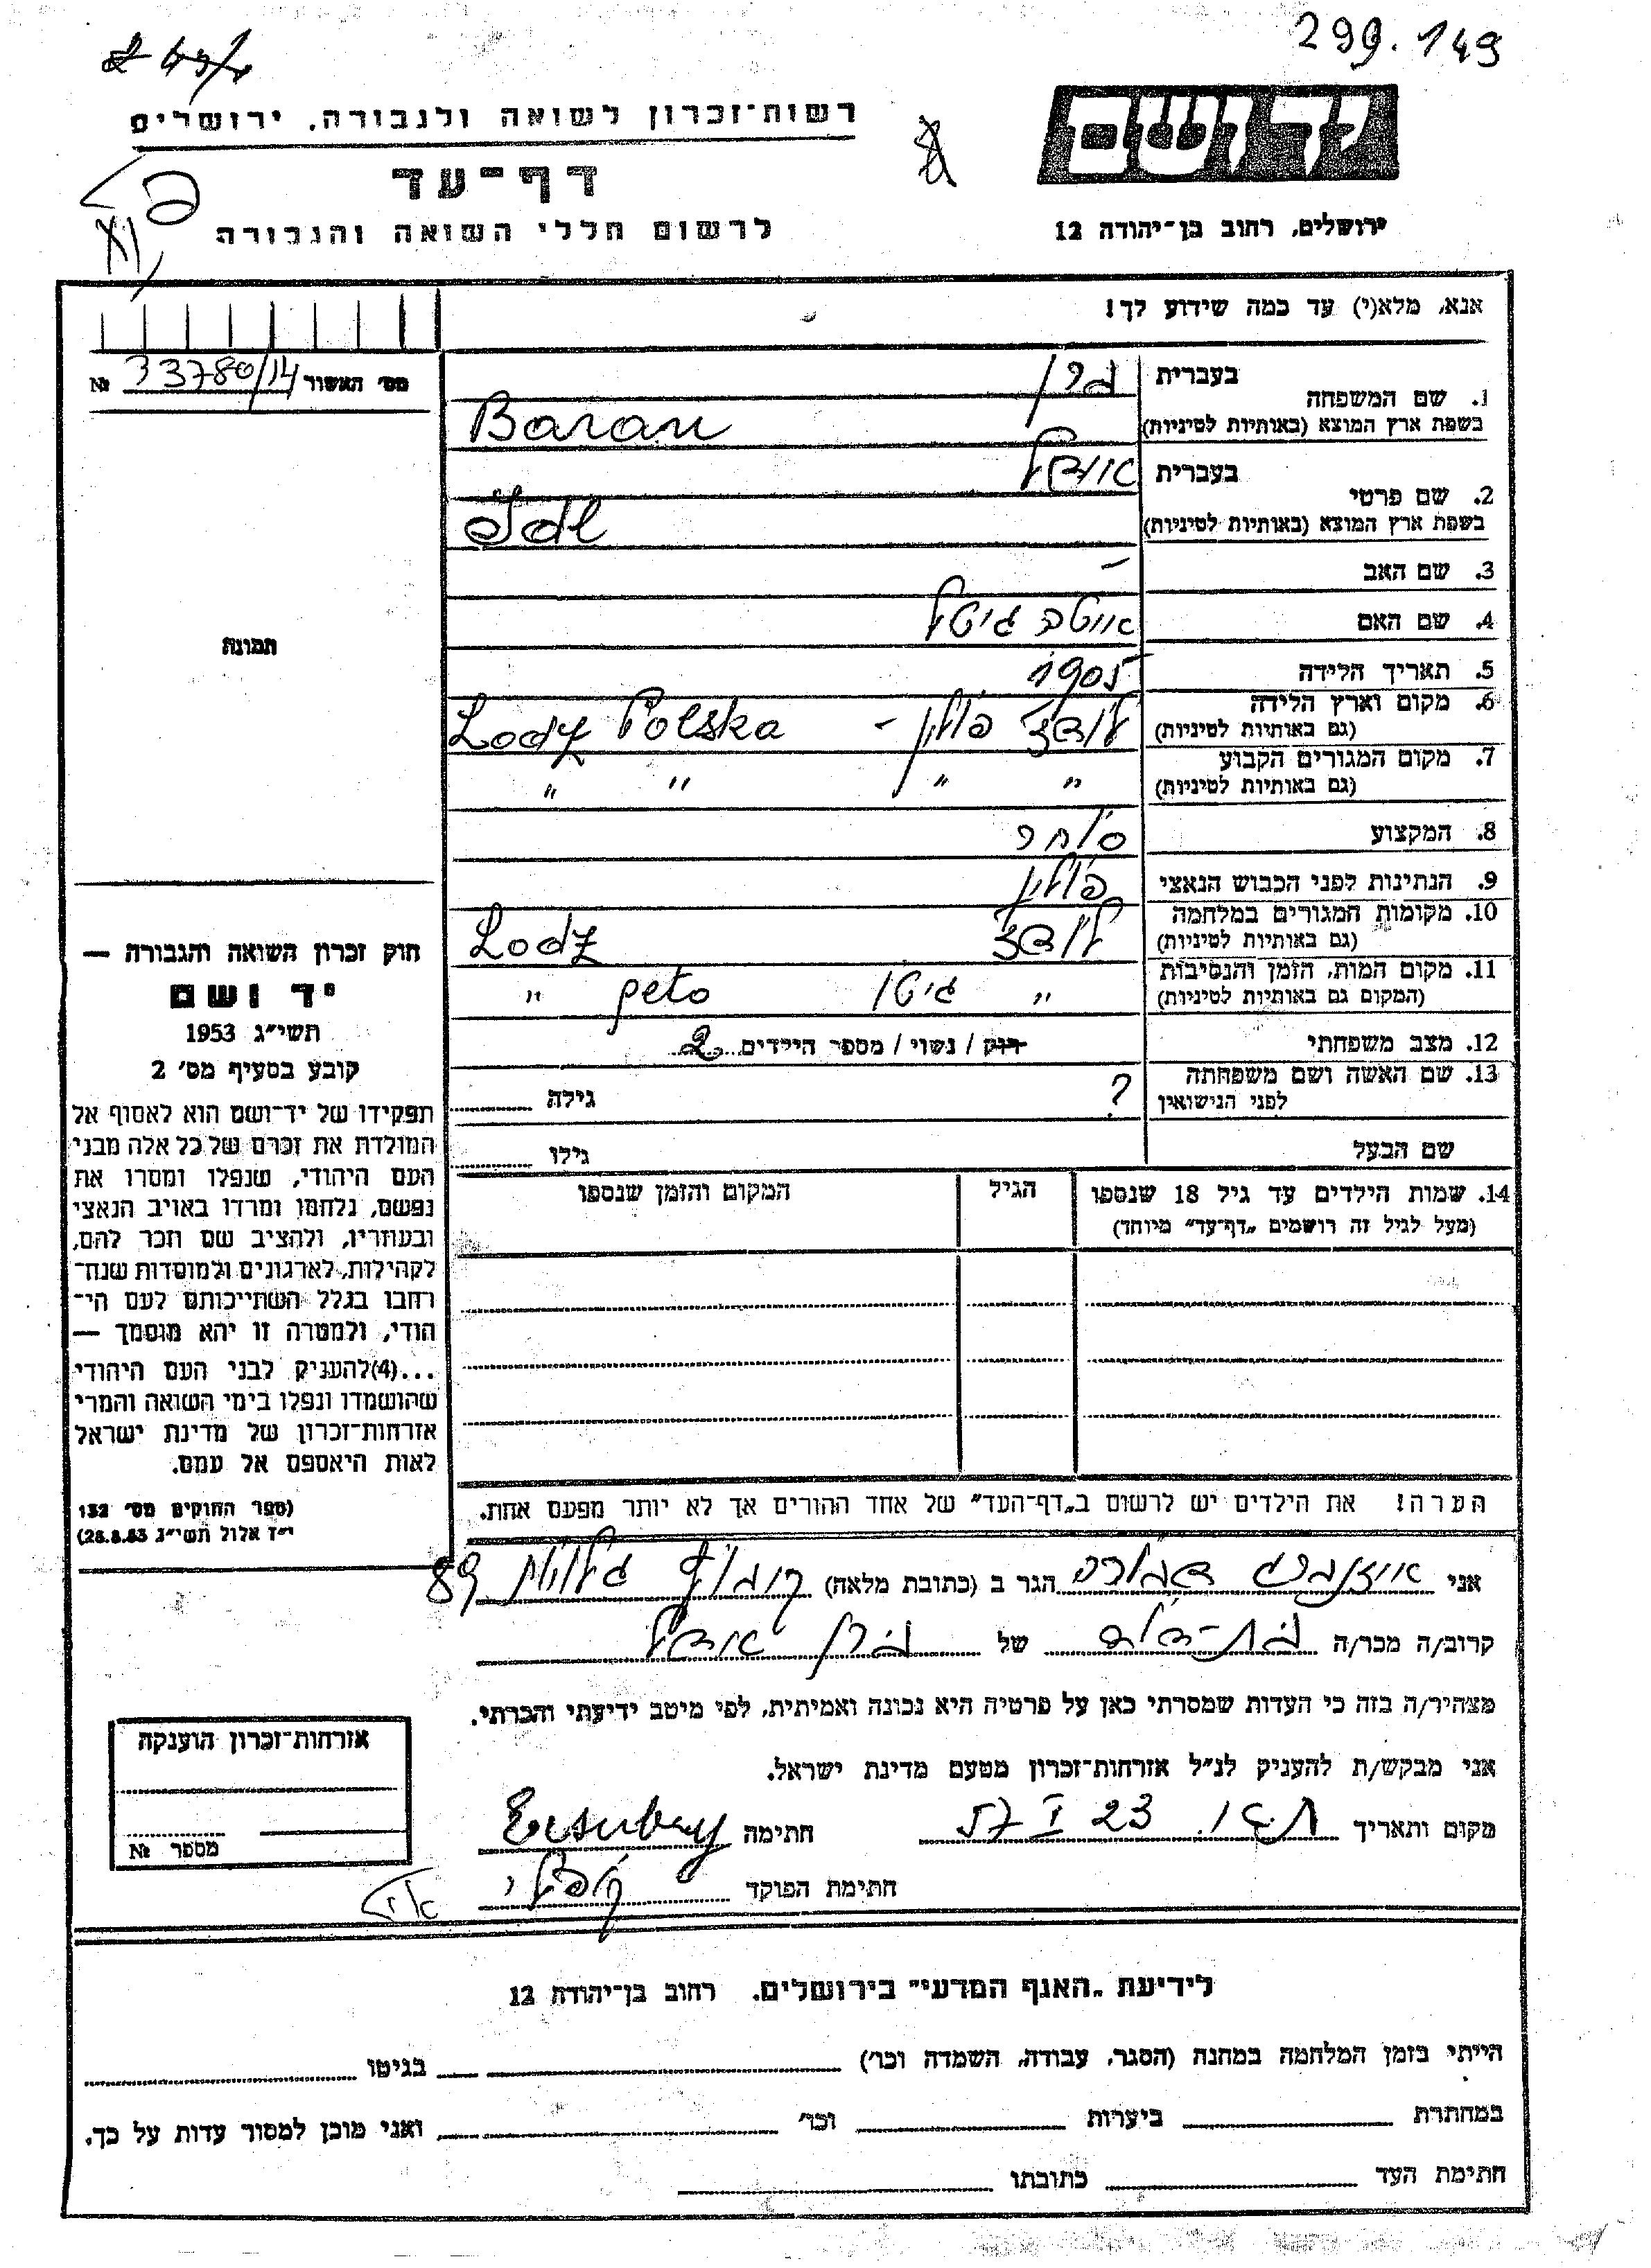 299.149
רשות־זכרון לשואה ולגבורה, ירושלים
יד ושם
דף־עד
לרשום חללי השואה והגבורה
ירושלים, רחוב בן־יהודה 12
אנא, מלא(י) עד כמה שידוע לך!
מס׳ האשור 33780/14 №
1. שם המשפחה בעברית ברן
בשפת ארץ המוצא (באותיות לטיניות) Baran
2. שם פרטי בעברית אידל
בשפת ארץ המוצא (באותיות לטיניות) Idl
3. שם האב –
4. שם האם איטה גיטל
5. תאריך הלידה 1905
6. מקום וארץ הלידה לודז פולין - Lodz Polska
(גם באותיות לטיניות)
7. מקום המגורים הקבוע " " " "
(גם באותיות לטיניות)
8. המקצוע סוחר
9. הנתינות לפני הכבוש הנאצי פולין
10. מקומות המגורים במלחמה לודז Lodz
(גם באותיות לטיניות)
11. מקום המות, הזמן והנסיבות " גיטו geto "
(המקום גם באותיות לטיניות)
12. מצב משפחתי רוק / נשוי / מספר הילדים 2
13. שם האשה ושם משפחתה ? גילה
לפני הנישואין
שם הבעל גילו
14. שמות הילדים עד גיל 18 שנספו הגיל המקום והזמן שנספו
(מעל לגיל זה רושמים „דף־עד" מיוחד)
הערה! את הילדים יש לרשום ב„דף־העד" של אחד ההורים אך לא יותר מפעם אחת.
תמונה
חוק זכרון השואה והגבורה —
יד ושם
תשי״ג 1953
קובע בסעיף מס׳ 2
תפקידו של יד־ושם הוא לאסוף אל
המולדת את זכרם של כל אלה מבני
העם היהודי, שנפלו ומסרו את
נפשם, נלחמו ומרדו באויב הנאצי
ובעוזריו, ולהציב שם וזכר להם,
לקהילות, לארגונים ולמוסדות שנח־
רחבו בגלל השתייכותם לעם הי־
הודי, ולמטרה זו יהא מוסמך —
...(4)להעניק לבני העם היהודי
שהושמדו ונפלו בימי השואה והמרי
אזרחות־זכרון של מדינת ישראל
לאות היאספם אל עמם.
(ספר החוקים מס׳ 132
י״ז אלול תשי״ג 28.8.53)
אני אייזנברג הגר ב (כתובת מלאה) 89
קרוב/ה מכר/ה בת-דודה של ברן אידל
מצהיר/ה בזה כי העדות שמסרתי כאן על פרטיה היא נכונה ואמיתית, לפי מיטב ידיעתי והכרתי.
אני מבקש/ת להעניק לנ״ל אזרחות־זכרון מטעם מדינת ישראל.
מקום ותאריך 23 I 57 חתימה
חתימת הפוקד
אזרחות־זכרון הוענקה
מספר №
לידיעת „האגף המדעי" בירושלים, רחוב בן־יהודה 12
הייתי בזמן המלחמה במחנה (הסגר, עבודה, השמדה וכו׳) בגיטו
במחתרת ביערות וכו׳ ואני מוכן למסור עדות על כך.
חתימת העד כתובתו